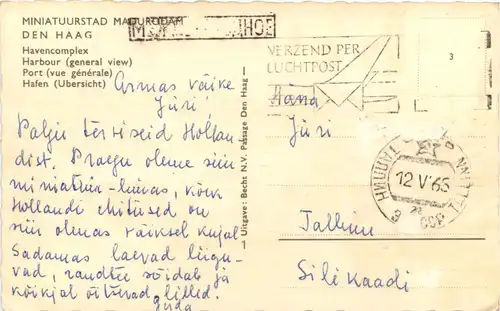 MINIATUURSTAD MADURODAM
DEN HAAG
Havencomplex
Harbour (general view)
Port (vue générale)
Hafen (Übersicht)
VERZEND PER
LUCHTPOST
3
Armas väike
Jüri
Palju terviseid Hollan-
dist. Praegu oleme siin
miniatuur-linnas, kõik
Hollandi ehitused on
siin olemas väiksel kujul
Sadamas laevad liigu-
vad, raudtee sõidab ja
kõikjal õitsevad lilled.
Uitgave: Becht N.V. Passage Den Haag
Jüri
TALLINN
12 V 65
Tallinn
Silikaadi